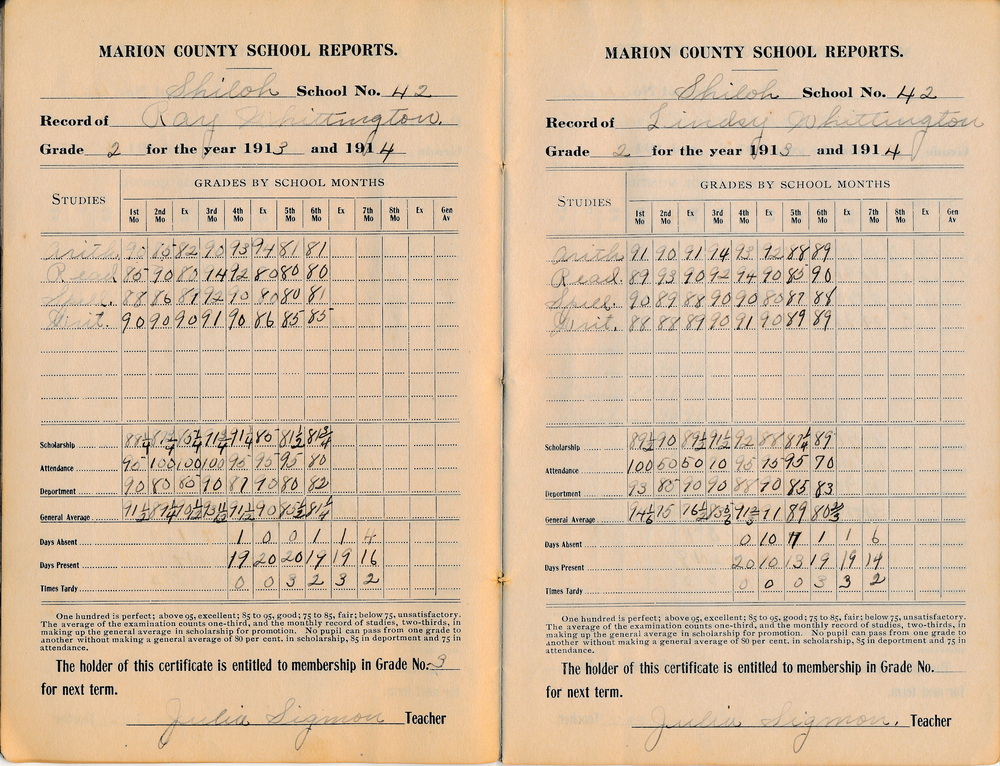 MARION COUNTY SCHOOL REPORTS.
Shiloh School No. 42
Record of Ray Whittington.
Grade 2 for the year 1913 and 1914
STUDIES
GRADES BY SCHOOL MONTHS
1st Mo 2nd Mo Ex 3rd Mo 4th Mo Ex 5th Mo 6th Mo Ex 7th Mo 8th Mo Ex Gen Av
Arith. 82 90 93 94 81 81
Read 85 90 80 92 80 80 80
Spell. 88 86 87 92 90 80 80 81
Writ. 90 90 90 91 90 86 85 85
Scholarship 85 81½ 81¾
Attendance 95 100 100 100 95 95 95 80
Department 90 80 80 87 80 82
General Average 90 85½ 81¼
Days Absent 1 0 0 1 1 4
Days Present 19 20 20 19 19 16
Times Tardy 0 0 3 2 3 2
One hundred is perfect; above 95, excellent; 85 to 95, good; 75 to 85, fair; below 75, unsatisfactory.
The average of the examination counts one-third, and the monthly record of studies, two-thirds, in
making up the general average in scholarship for promotion. No pupil can pass from one grade to
another without making a general average of 80 per cent. in scholarship, 85 in department and 75 in
attendance.
The holder of this certificate is entitled to membership in Grade No. 3
for next term.
Julia Sigmon Teacher
MARION COUNTY SCHOOL REPORTS.
Shiloh School No. 42
Record of Lindsy Whittington
Grade 2 for the year 1913 and 1914
STUDIES
GRADES BY SCHOOL MONTHS
1st Mo 2nd Mo Ex 3rd Mo 4th Mo Ex 5th Mo 6th Mo Ex 7th Mo 8th Mo Ex Gen Av
Arith. 91 90 91 94 93 92 88 89
Read. 89 93 90 92 94 90 85 90
Spell. 90 89 88 90 90 80 87 88
Writ. 88 88 89 90 91 90 89 89
Scholarship 89½ 90 89½ 91½ 92 88 87¼ 89
Attendance 100 50 50 95 95 70
Department 93 85 90 90 88 85 83
General Average 89 80⅔
Days Absent 0 10 7 1 1 6
Days Present 20 10 13 19 19 14
Times Tardy 0 0 0 3 3 2
One hundred is perfect; above 95, excellent; 85 to 95, good; 75 to 85, fair; below 75, unsatisfactory.
The average of the examination counts one-third, and the monthly record of studies, two-thirds, in
making up the general average in scholarship for promotion. No pupil can pass from one grade to
another without making a general average of 80 per cent. in scholarship, 85 in department and 75 in
attendance.
The holder of this certificate is entitled to membership in Grade No.
for next term.
Julia Sigmon. Teacher